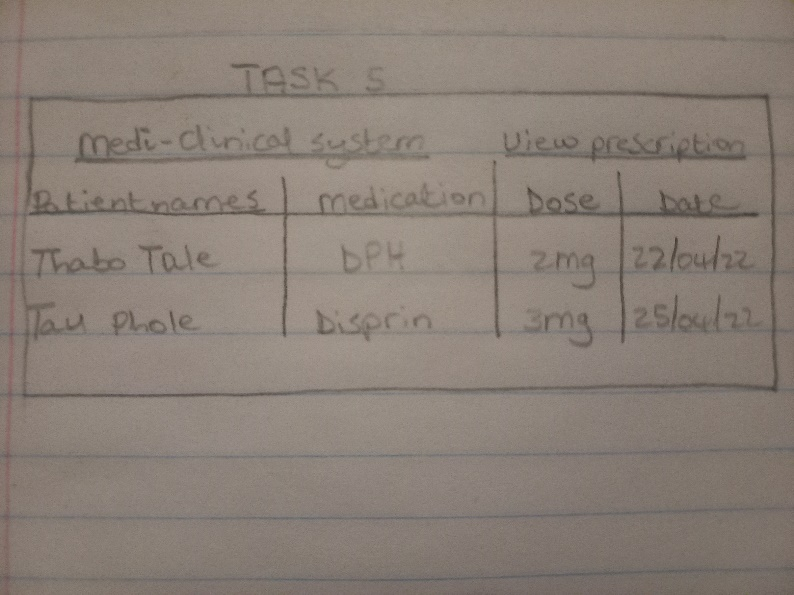 TASK 5
Medi-Clinical system View prescription
Patient names Medication Dose Date
Thabo Tale DPH 2mg 22/04/22
Tau Phole Disprin 3mg 25/04/22